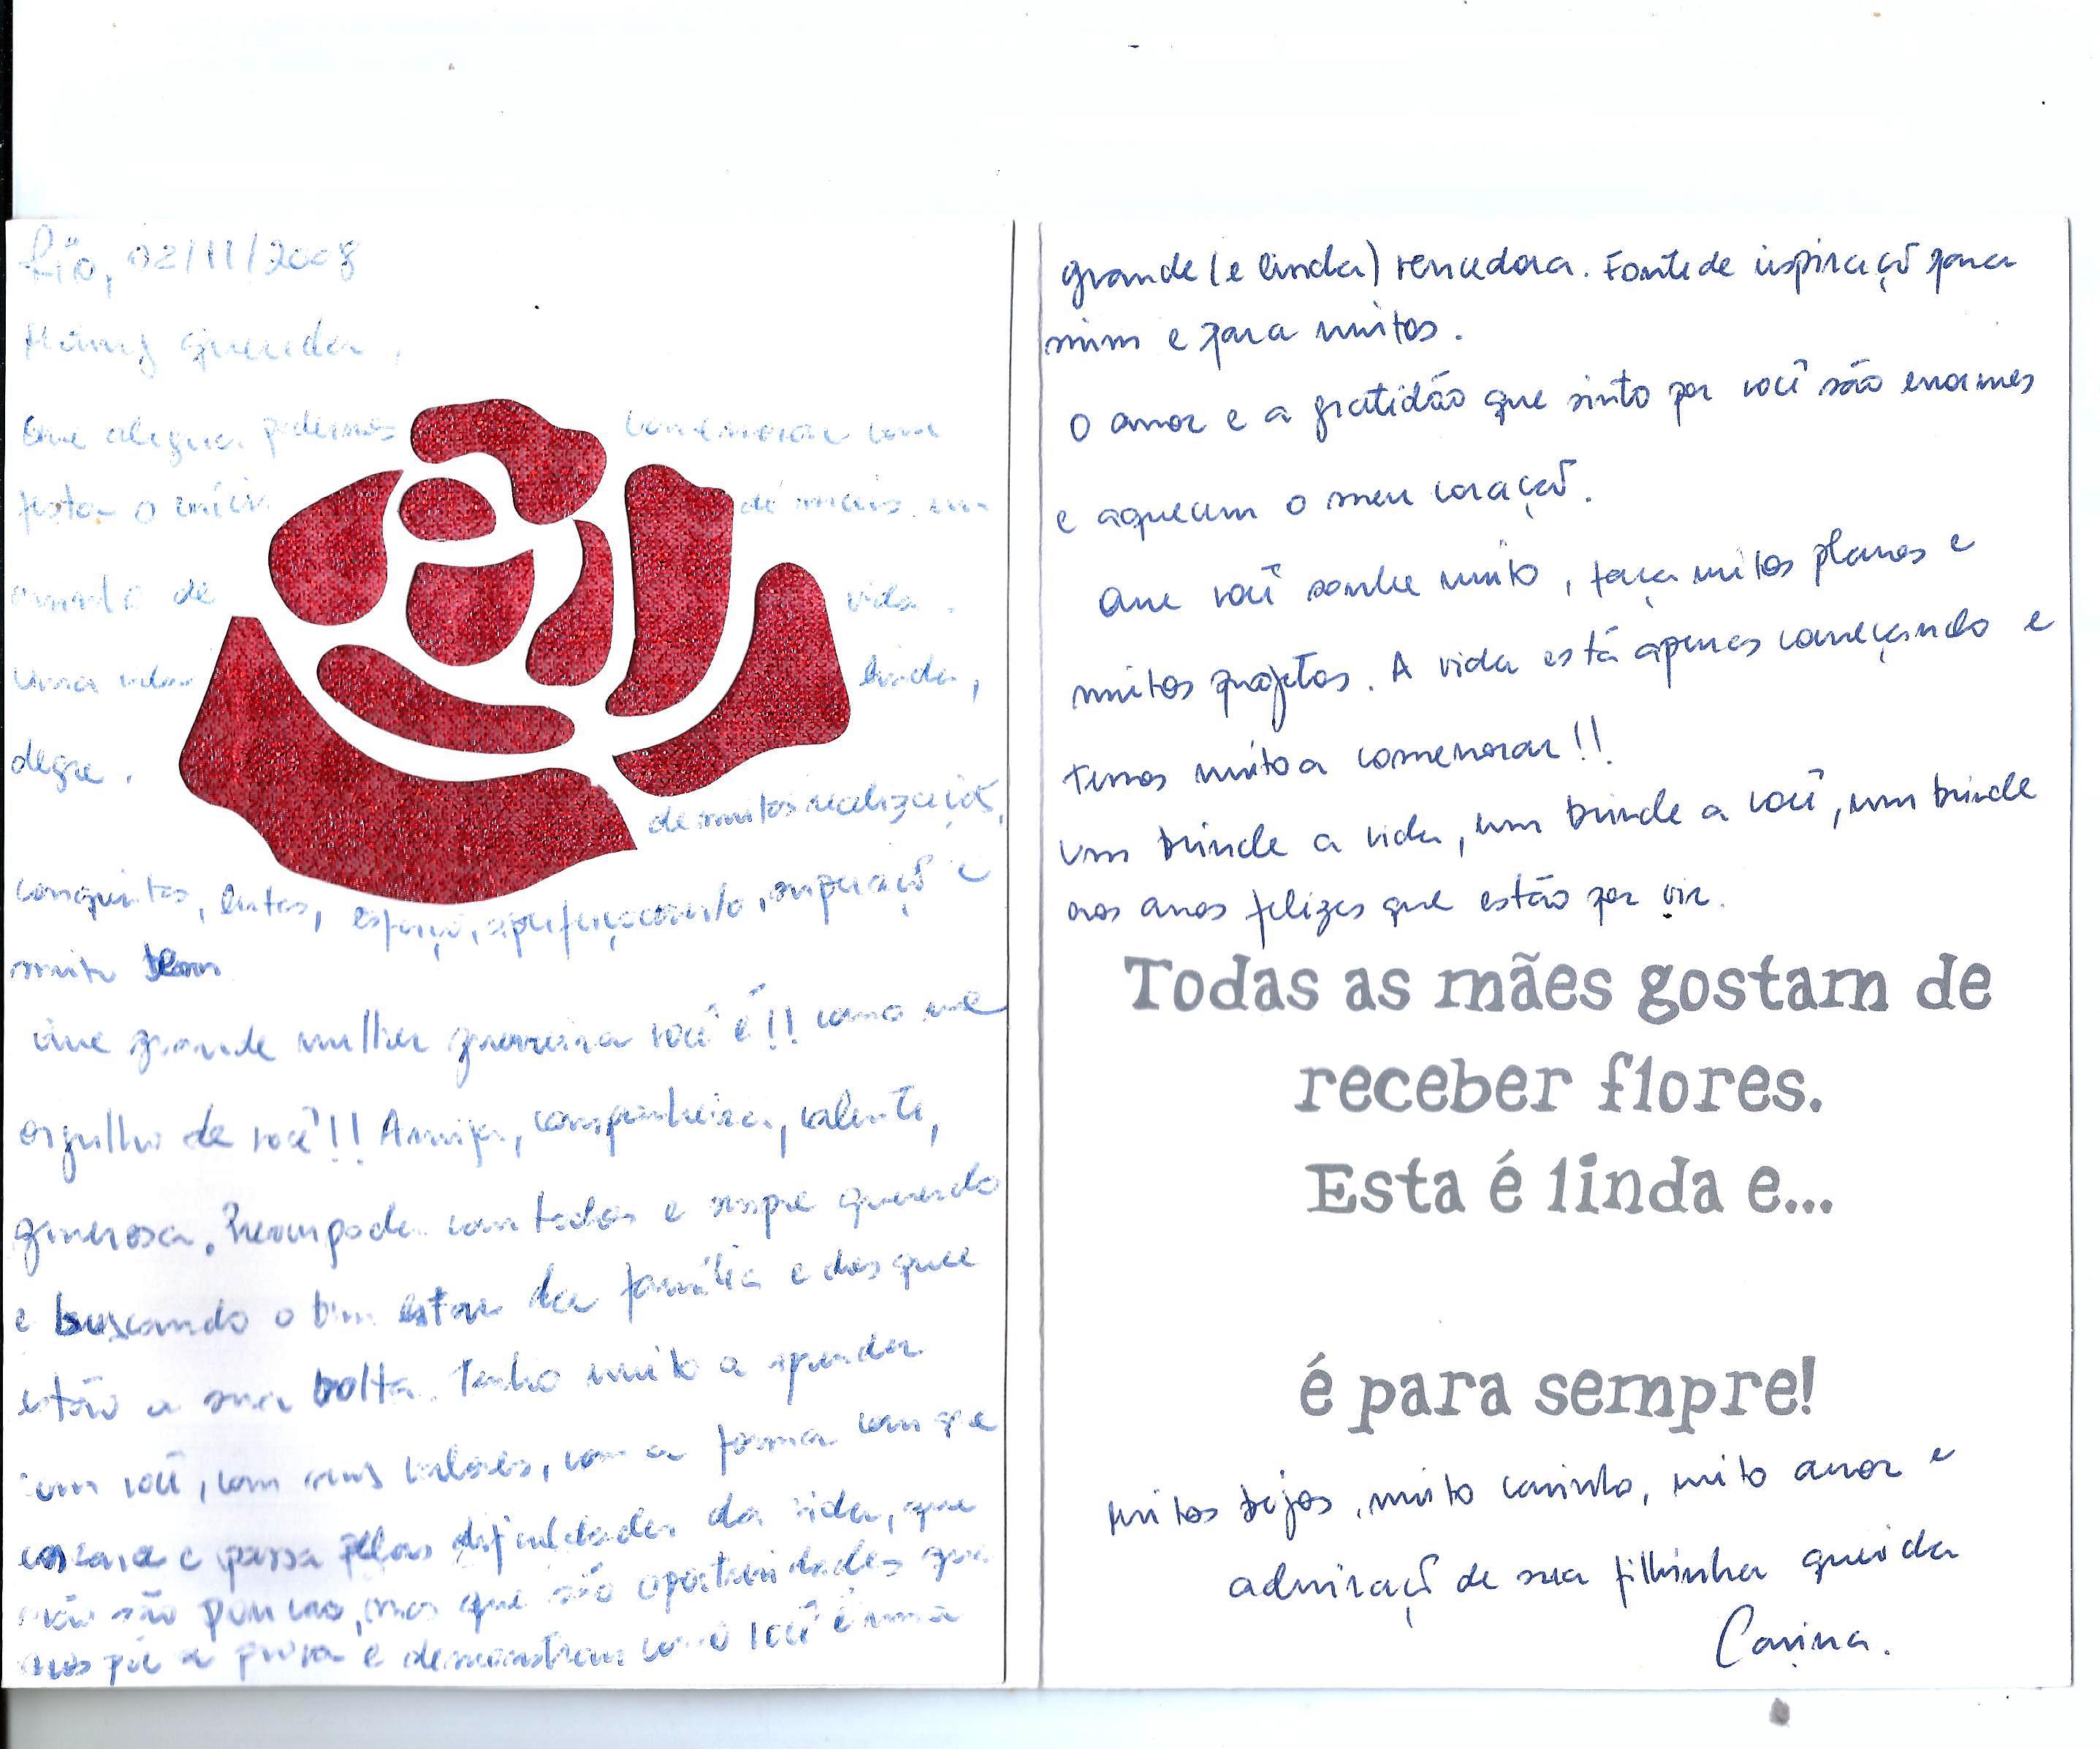 Rio, 02/11/2008
Mãmy querida,
Que alegria podermos comemorar com
festa o início de mais um
de vida.
Uma vida linda,
alegre.
de muitas realizações,
conquistas, lutas, esforço, aperfeiçoamento, superação e
muito
Que grande mulher guerreira você é!! Como me
orgulho de você!! Amiga, companheira, valente,
generosa. Preocupada com todos e sempre querendo
e buscando o bem estar da família e dos que
estão a sua volta. Tenho muito a aprender
com você, com seus valores, com a forma com que
encara e passa pelas dificuldades da vida, que
não são poucas, mas que são oportunidades que
nos põe a prova e demonstram como você é uma
grande (e linda) vencedora. Fonte de inspiração para
mim e para muitos.
O amor e a gratidão que sinto por você são enormes
e aquecem o meu coração.
Que você sonhe muito, faça muitos planos e
muitos projetos. A vida está apenas começando e
temos muito a comemorar!!
Um brinde a vida, um brinde a você, um brinde
aos anos felizes que estão por vir.
Todas as mães gostam de
receber flores.
Esta é linda e...
é para sempre!
Muitos bejos, muito carinho, muito amor e
admiração de sua filhinha querida
Carina.